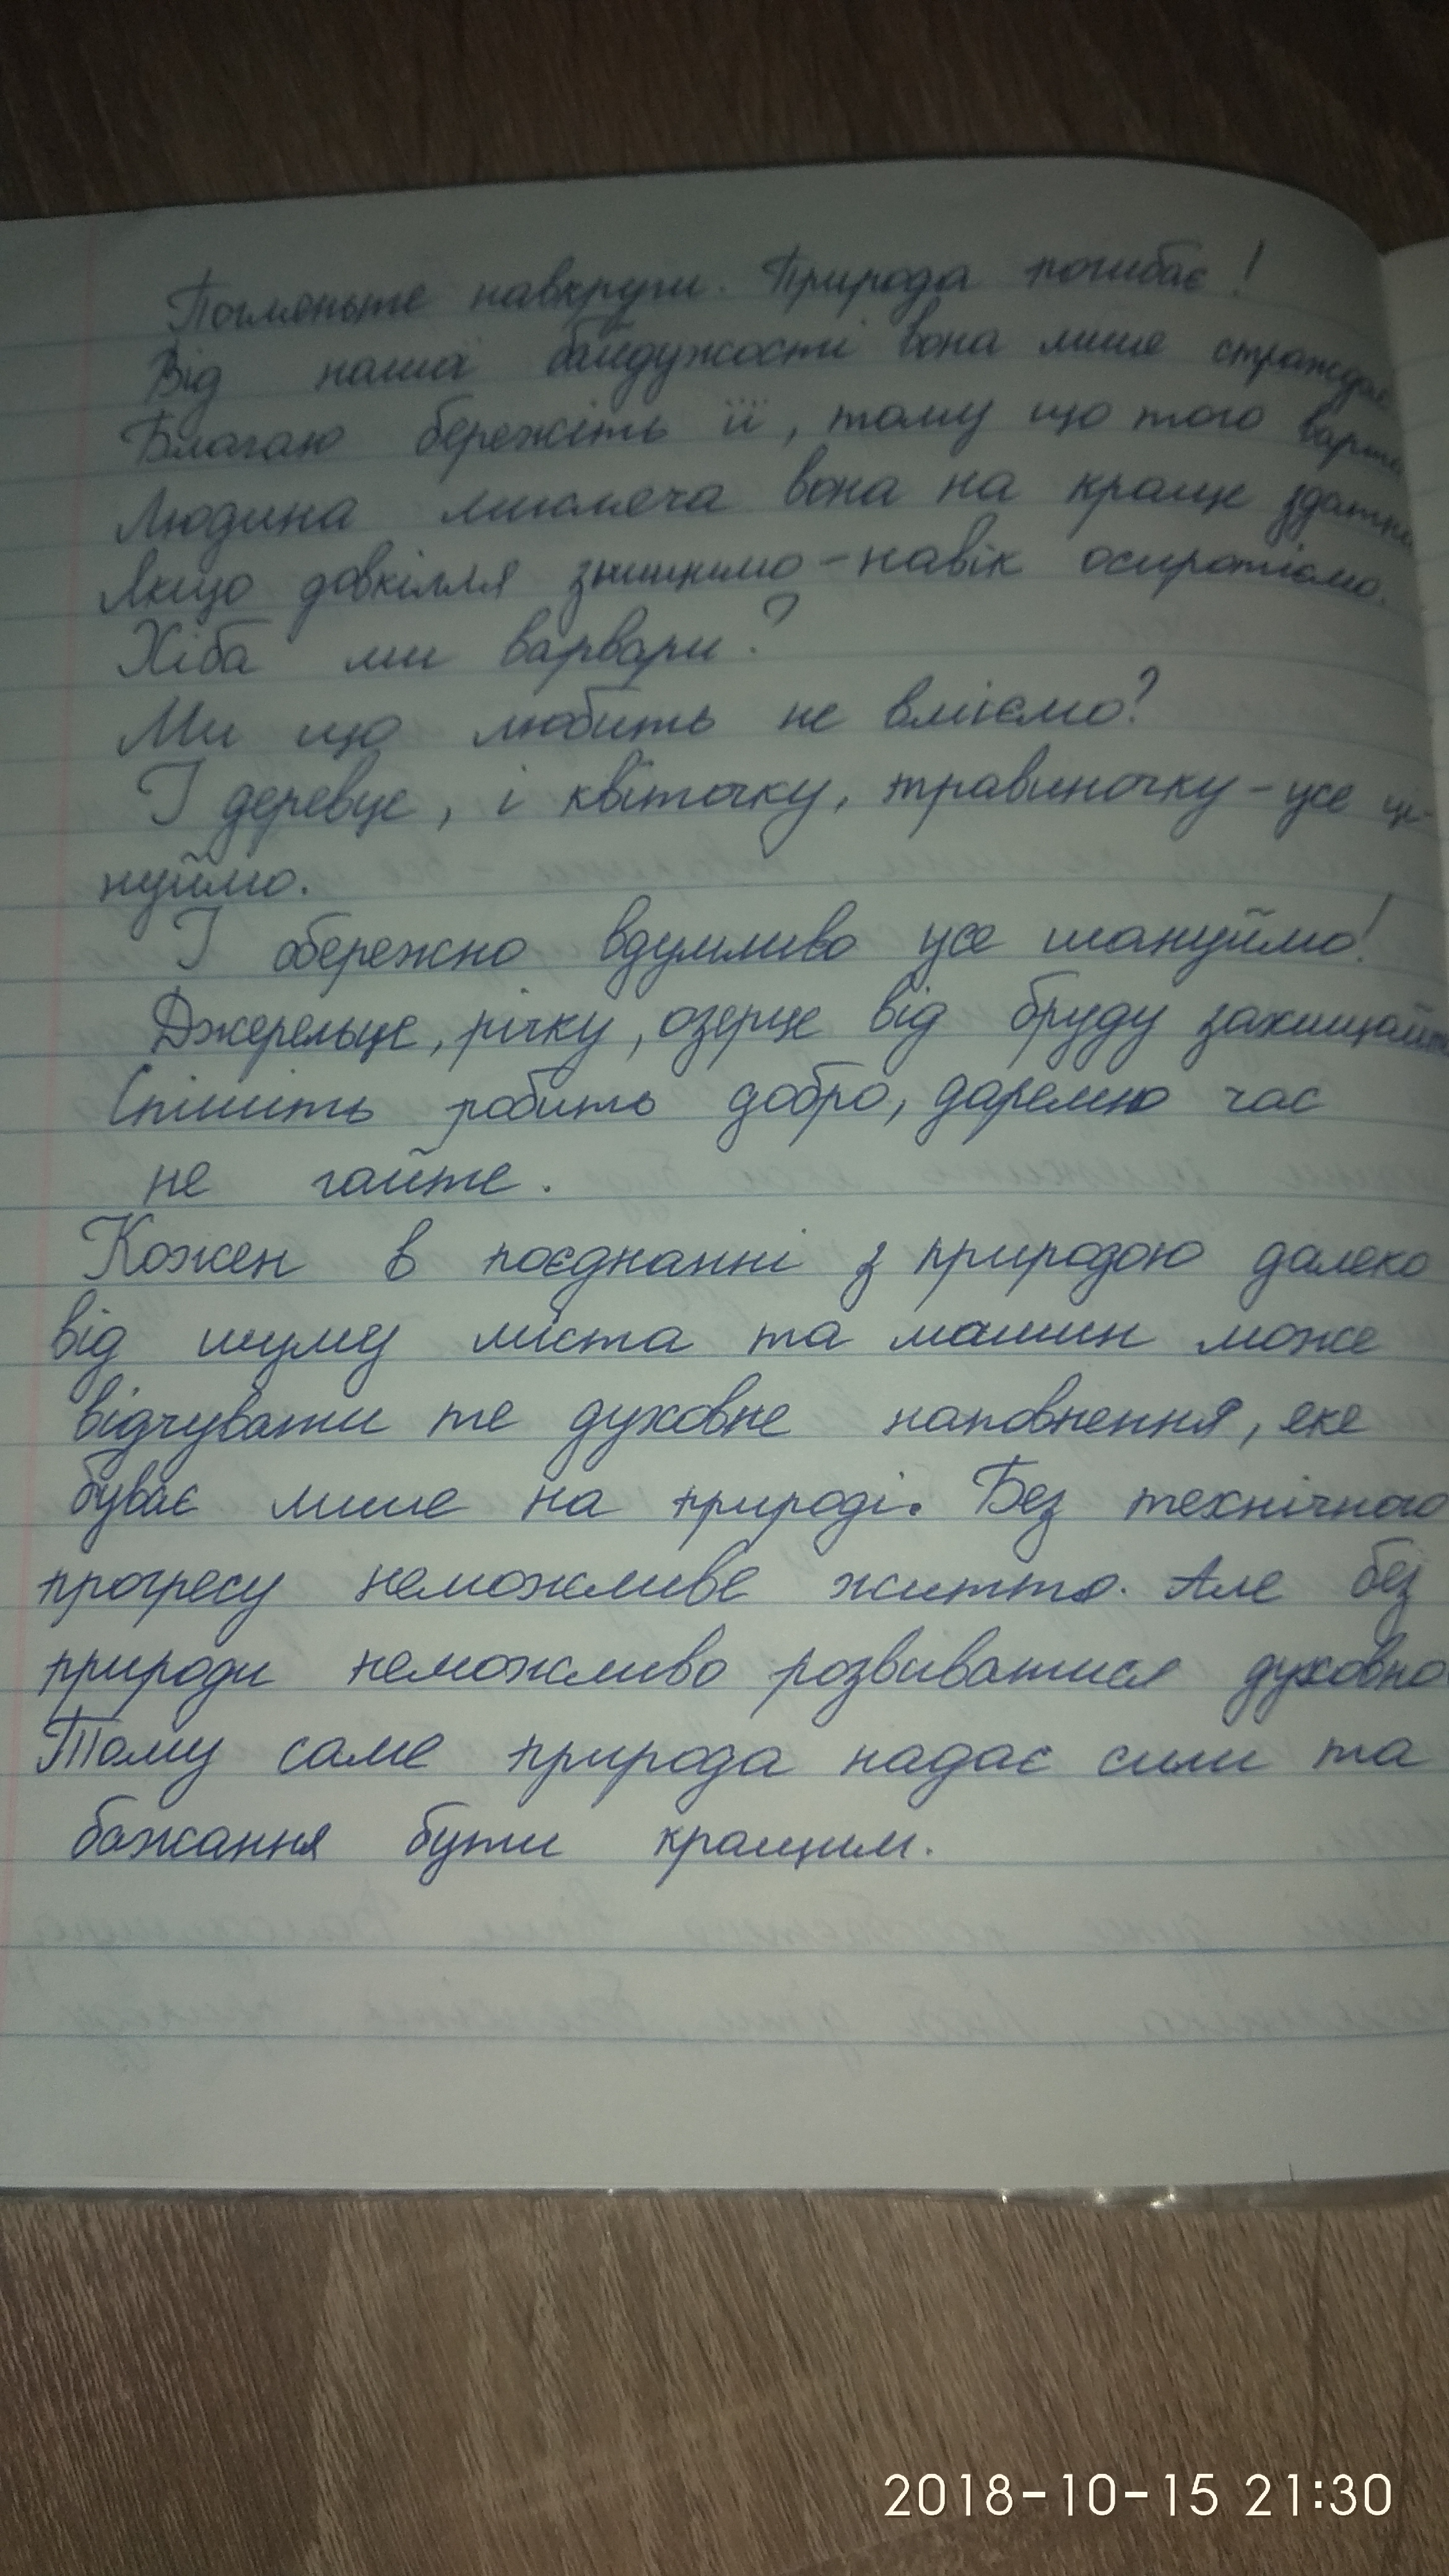 Погляньте навкруги. Природа погибає!
Від нашої байдужості вона лише страждає
Благаю бережіть її, тому що того варта
Людина мисляча вона на краще здатна
Якщо довкілля знищимо - навік осиротіємо.
Хіба ми варвари?
Ми що любить не вміємо?
І деревце, і квіточку, травиночку - усе ці-
нуймо.
І обережно вдумливо усе шануймо!
Джерельце, річку, озерце від бруду захищайте
Спішить робить добро, даремно час
не гайте.
Кожен в поєднанні з природою далеко
від шуму міста та машин може
відчувати те духовне наповнення, яке
буває лише на природі. Без технічного
прогресу неможливе життя. Але без
природи неможливо розвиватися духовно
Тому саме природа надає сили та
бажання бути кращим.
2018-10-15 21:30